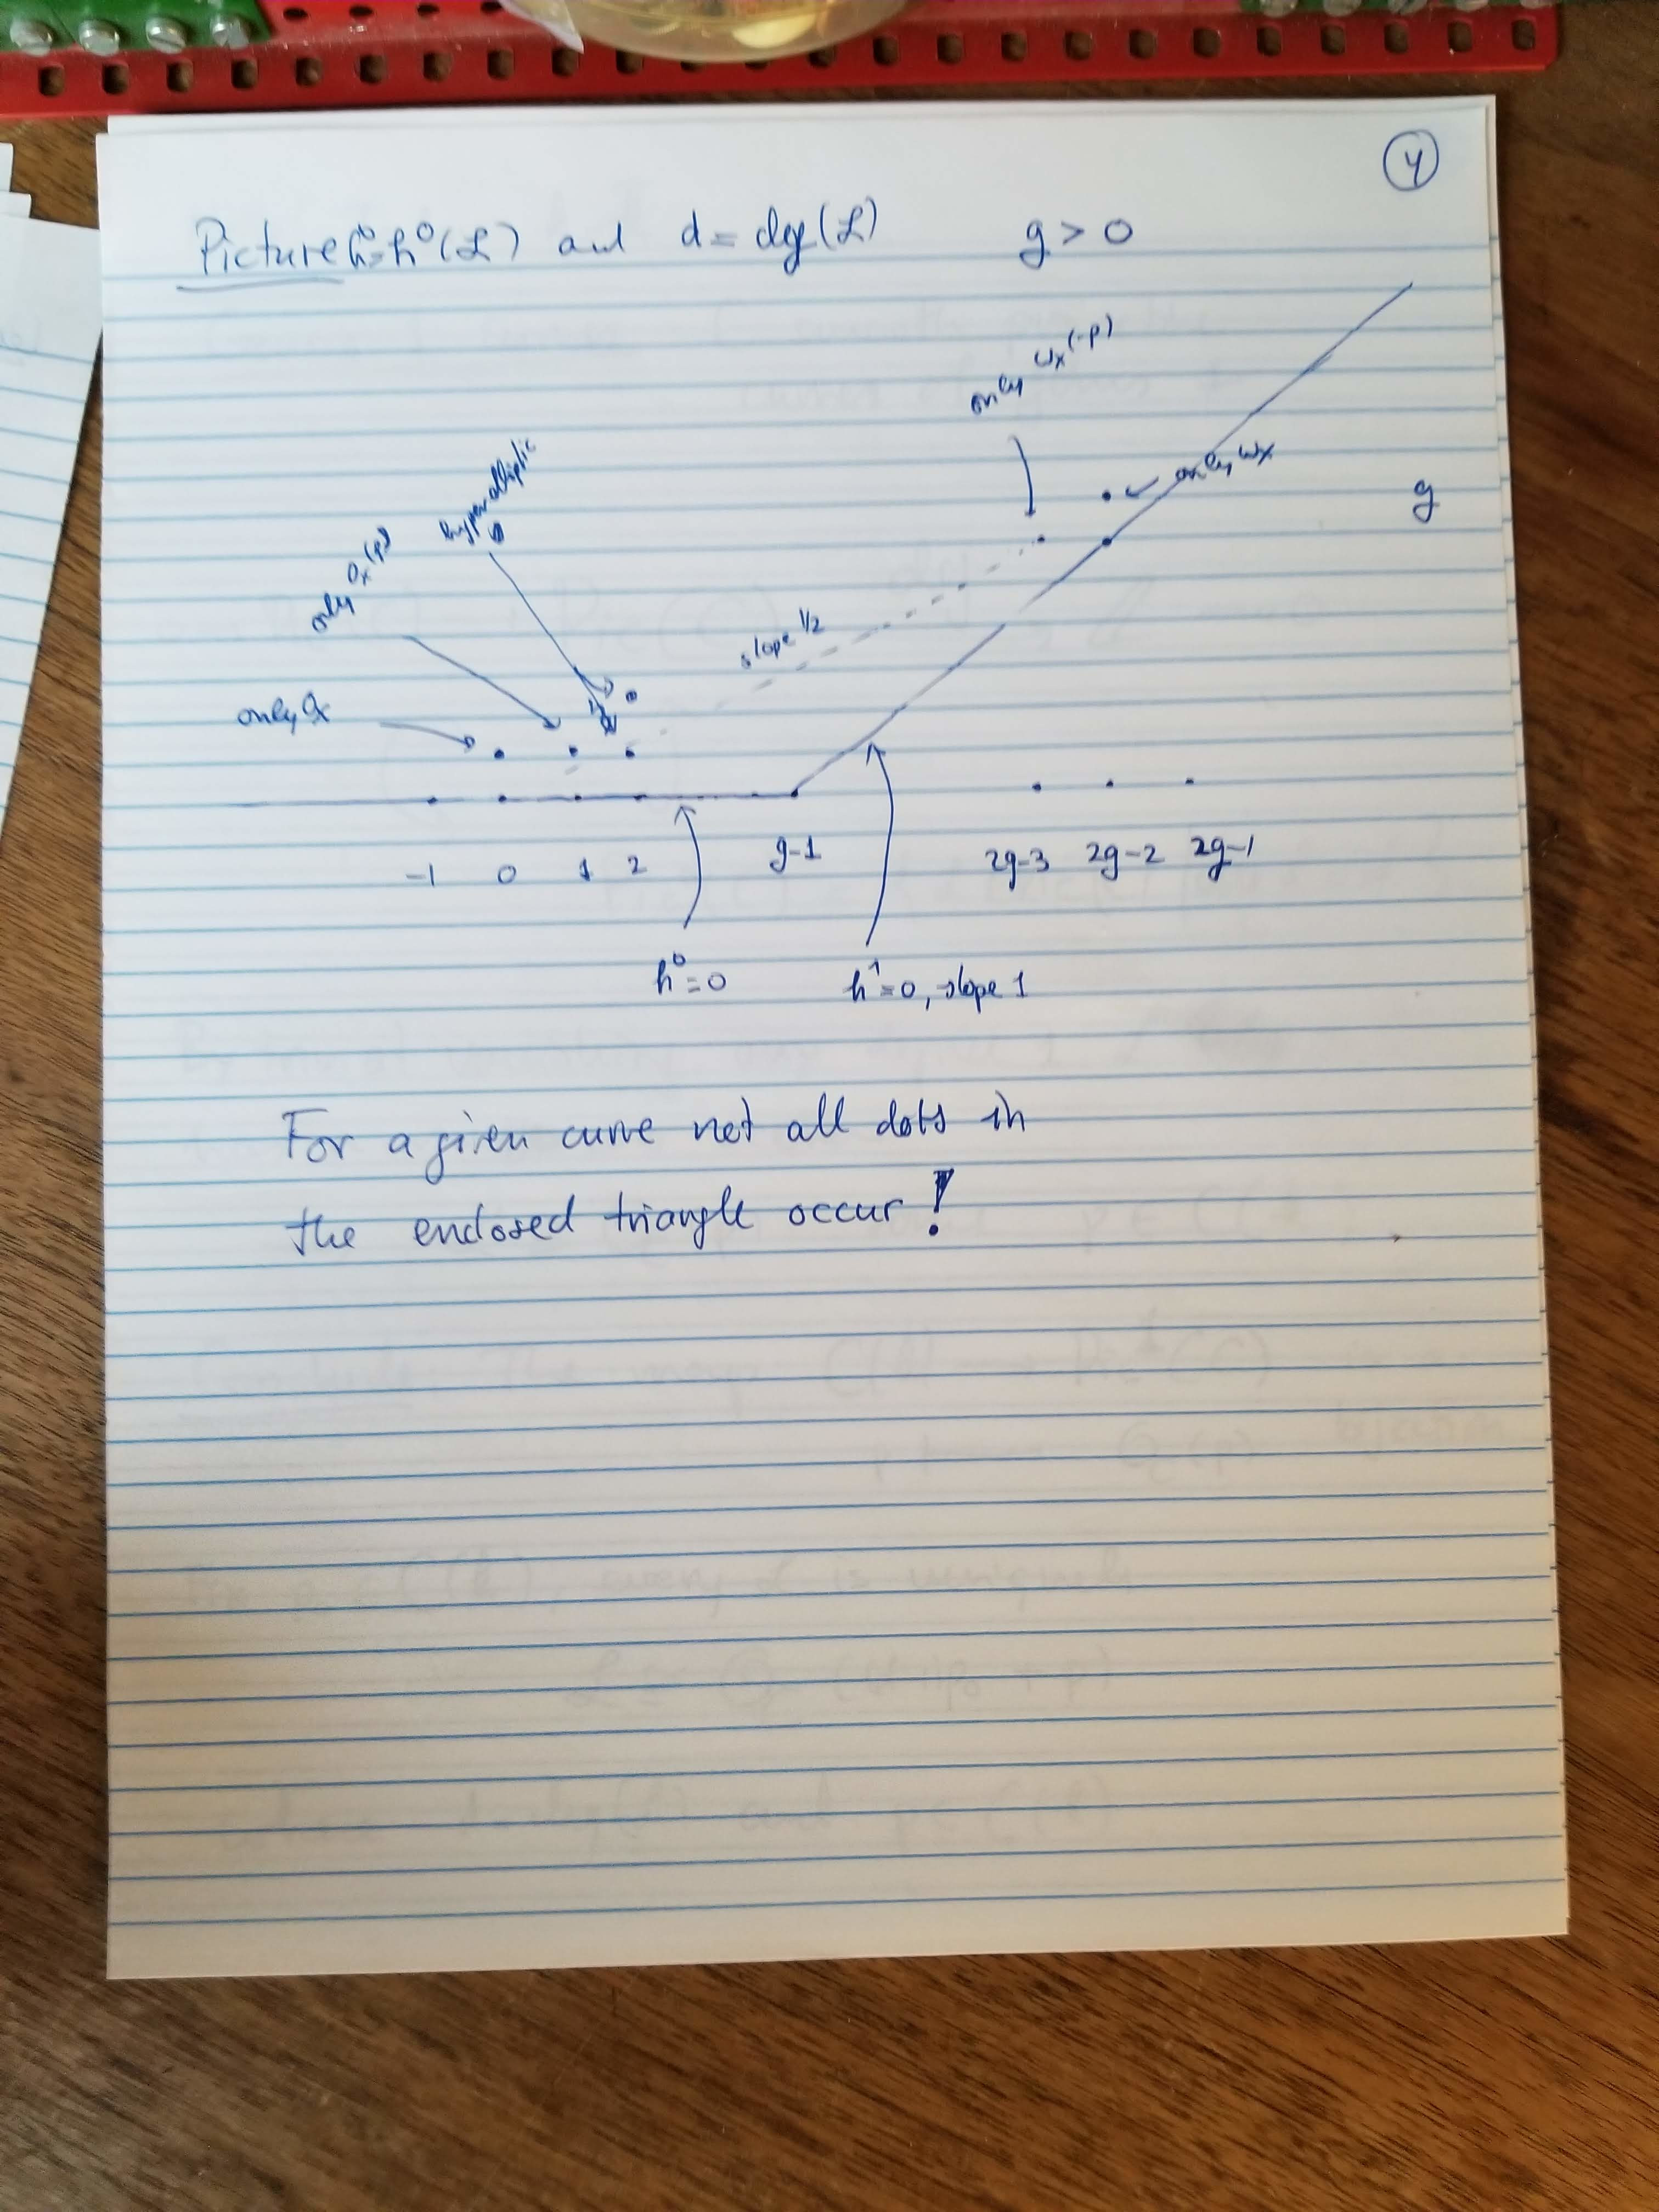 4
Picture h⁰=h⁰(ℒ) and d = deg(ℒ) g > 0
only ωx(-p)
only ωx
g
hyperelliptic
only Ox(p)
slope 1/2
only Ox
-1 0 1 2 g-1 2g-3 2g-2 2g-1
h⁰=0 h¹=0, slope 1
For a given curve not all dots in
the enclosed triangle occur!